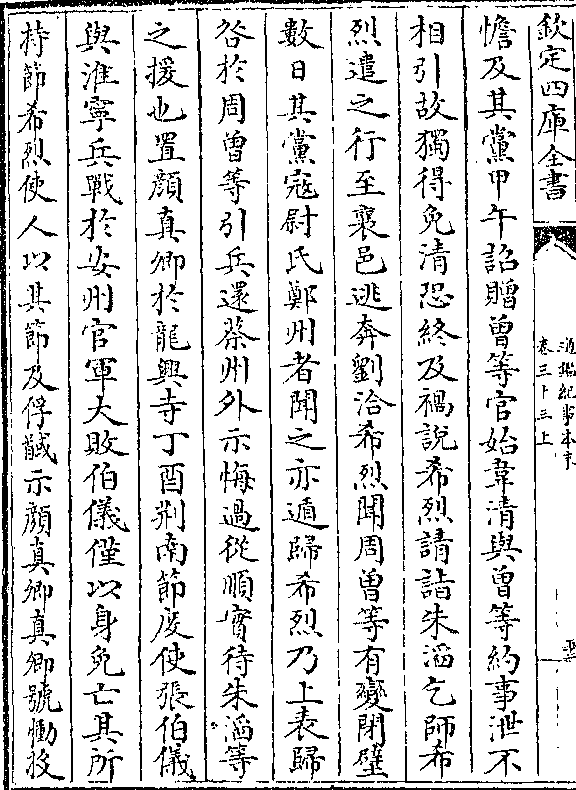 欽定四庫全書
通鑑紀事本末
卷三十三上
憺及其黨甲午詔贈曾等官始韋清與曾等約事泄不
相引故獨得免清恐終及禍說希烈請詣朱滔乞師希
烈遣之行至襄邑逃奔劉洽希烈聞周曾等有變閉壁
數日其黨寇尉氏鄭州者聞之亦遁歸希烈乃上表歸
咎於周曾等引兵還蔡州外示悔過從順實待朱滔等
之援也置顏真卿於龍興寺丁酉荆南節度使張伯儀
與淮寧兵戰於安州官軍大敗伯儀僅以身免亡其所
持節希烈使人以其節及俘馘示顏真卿真卿號慟投